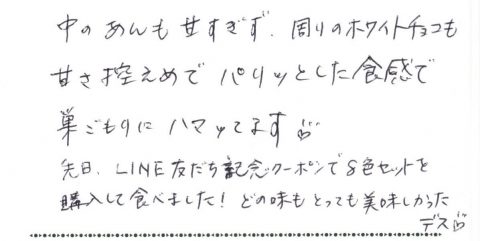 中のあんも甘すぎず、周りのホワイトチョコも
甘さ控えめで パリッとした食感で
巣ごもりに ハマッてます
先日、LINE友だち記念クーポンで8色セットを
購入して食べました！どの味もとっても美味しかった
デス